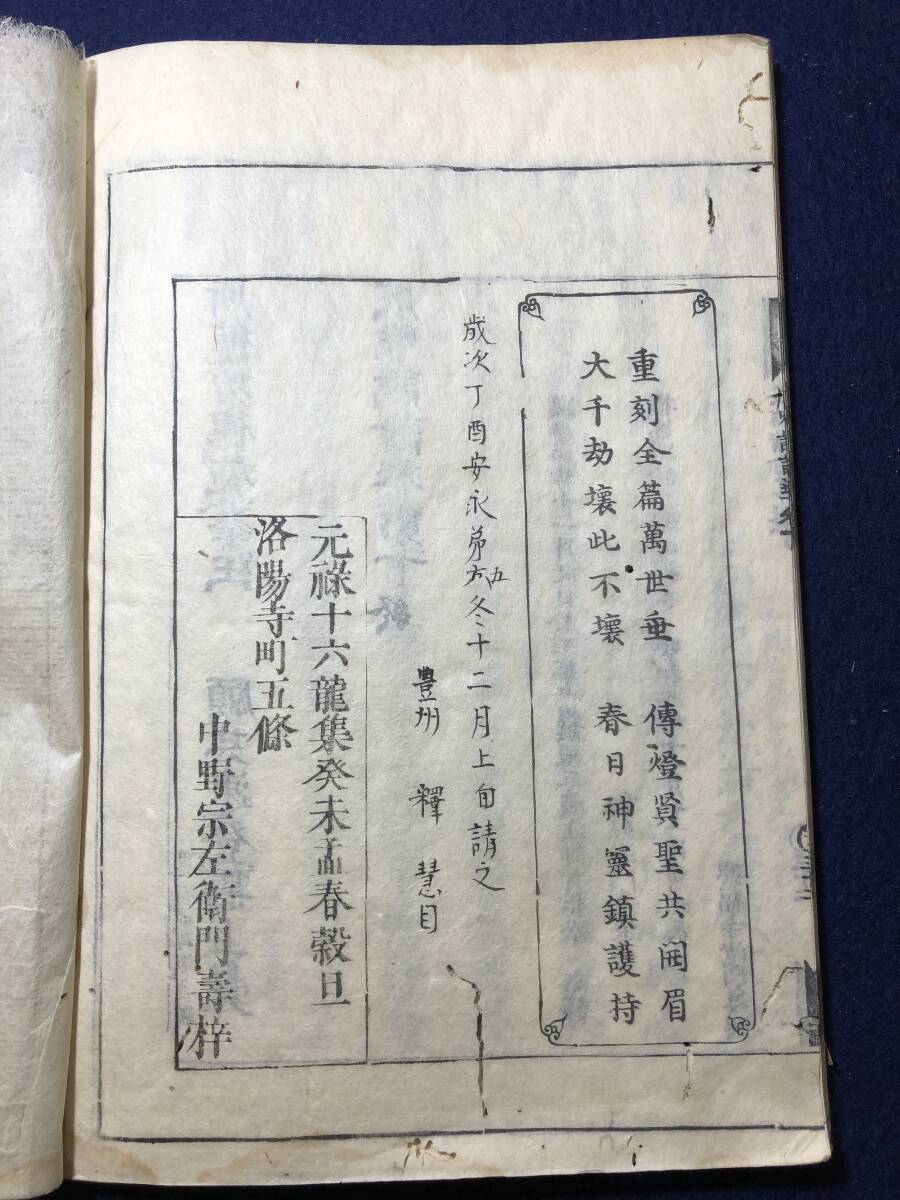 重刻全篇萬世垂 傳燈賢聖共開眉
大千劫壞此不壞 春日神靈鎮護持
歳次丁酉安永第六五冬十二月上旬請之
豊州 釋 慧目
元祿十六龍集癸未孟春穀旦
洛陽寺町五條
中野宗左衛門壽梓